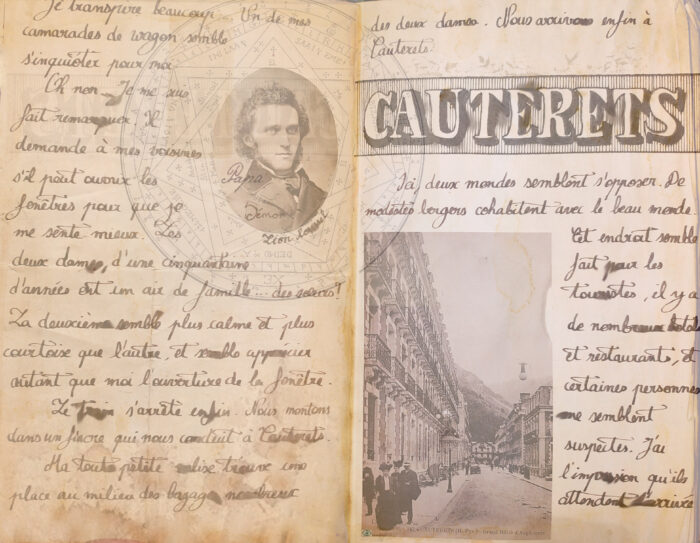 Je transpire beaucoup... Un de mes
camarades de wagon semble
s'inquiéter pour moi.
Oh non. Je me suis
fait remarquer. Il
demande à mes voisines
s'il peut ouvrir les
fenêtres pour que je
me sente mieux. Les
deux dames, d'une cinquantaine
d'années ont un air de famille... des sœurs?
La deuxième semble plus calme et plus
courtoise que l'autre, et semble apprécier
autant que moi l'ouverture de la fenêtre.
Le train s'arrête enfin. Nous montons
dans un fiacre qui nous conduit à Cauterets.
Ma toute petite valise trouve une
place au milieu des bagages nombreux
Papa
Simon
des deux dames. Nous arrivons enfin à
Cauterets.
CAUTERETS
Ici, deux mondes semblent s'opposer. De
modestes bergers cohabitent avec le beau monde.
Cet endroit semble
fait pour les
touristes, il y a
de nombreux hotels
et restaurants, et
certaines personnes
me semblent
suspectes. J'ai
l'impression qu'ils
attendent l'arrivée